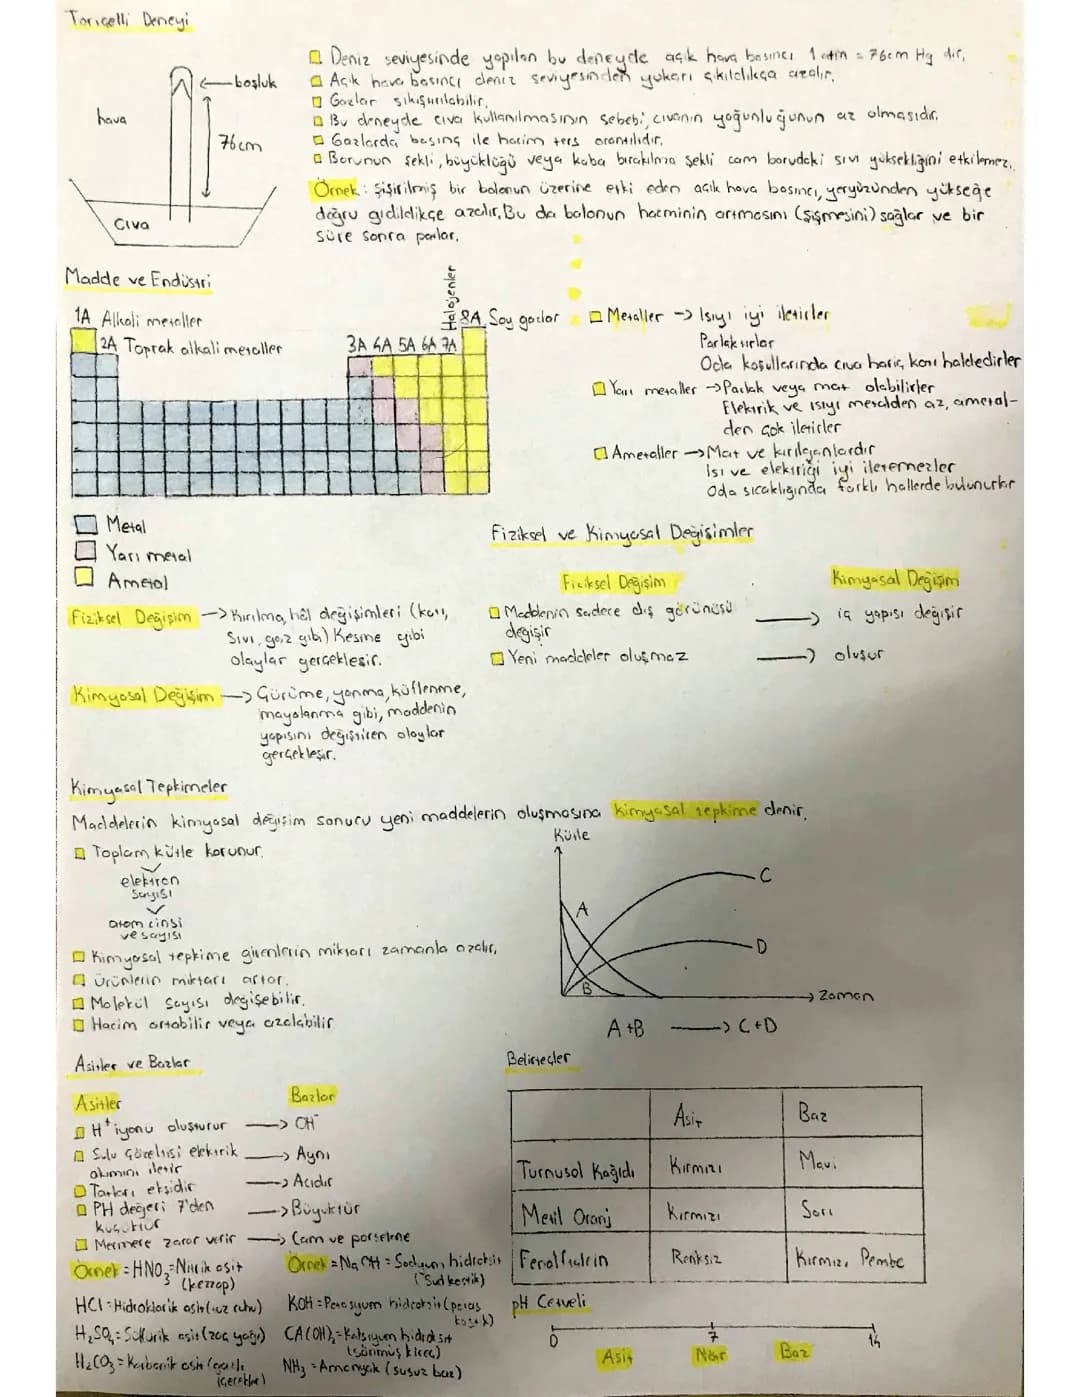 Toriçelli Deneyi
boşluk
hava
76cm
Cıva
Deniz seviyesinde yapılan bu deneyde açık hava basıncı 1 atm = 76cm Hg dir.
Açık hava basıncı deniz seviyesinden yukarı çıkıldıkça azalır.
Gazlar sıkıştırılabilir.
Bu deneyde cıva kullanılmasının sebebi, cıvanın yoğunluğunun az olmasıdır.
Gazlarda basınç ile hacim ters orantılıdır.
Borunun şekli, büyüklüğü veya kaba bırakılma şekli cam borudaki sıvı yüksekliğini etkilemez.
Örnek: Şişirilmiş bir balonun üzerine etki eden açık hava basıncı, yeryüzünden yükseğe
doğru gidildikçe azalır. Bu da balonun hacminin artmasını (şişmesini) sağlar ve bir
süre sonra patlar.
Madde ve Endüstri
1A Alkali metaller
2A Toprak alkali metaller
3A 4A 5A 6A 7A
Halojenler
8A Soy gazlar
Metal
Yarı metal
Ametal
Metaller -> Isıyı iyi iletirler
Parlaktırlar
Oda koşullarında cıva hariç katı haldedirler
Yarı metaller -> Parlak veya mat olabilirler
Elektrik ve ısıyı metalden az, ametal-
den çok iletirler
Ametaller -> Mat ve kırılganlardır
Isı ve elektriği iyi iletemezler
Oda sıcaklığında farklı hallerde bulunurlar
Fiziksel Değişim -> Kırılma, hâl değişimleri (katı,
sıvı, gaz gibi) Kesme gibi
olaylar gerçekleşir.
Kimyasal Değişim -> Çürüme, yanma, küflenme,
mayalanma gibi, maddenin
yapısını değiştiren olaylar
gerçekleşir.
Fiziksel ve Kimyasal Değişimler
Fiziksel Değişim
Kimyasal Değişim
Maddenin sadece dış görünüşü
değişir
-> iç yapısı değişir
Yeni maddeler oluşmaz
-> oluşur
Kimyasal Tepkimeler
Maddelerin kimyasal değişim sonucu yeni maddelerin oluşmasına kimyasal tepkime denir.
Toplam kütle korunur.
elektron
sayısı
atom cinsi
ve sayısı
Kimyasal tepkime girenlerin miktarı zamanla azalır.
Ürünlerin miktarı artar.
Molekül sayısı değişebilir.
Hacim artabilir veya azalabilir
Kütle
A
B
C
D
Zaman
A+B -> C+D
Asitler ve Bazlar
Asitler
Bazlar
H⁺ iyonu oluşturur -> OH⁻
Sulu çözeltisi elektrik
akımını iletir
-> Aynı
Tatları ekşidir -> Acıdır
PH değeri 7'den
küçüktür
-> Büyüktür
Mermere zarar verir -> Cam ve porselene
Örnek = HNO₃ = Nitrik asit
(kezzap)
HCl = Hidroklorik asit (tuz ruhu)
H₂SO₄ = Sülfürik asit (zaç yağı)
H₂CO₃ = Karbonik asit (gazlı
içecekler)
Örnek = NaOH = Sodyum hidroksit
(Sud kostik)
KOH = Potasyum hidroksit (potas
kostik)
CA(OH)₂ = Kalsiyum hidroksit
(sönmüş kireç)
NH₃ = Amonyak (susuz baz)
Belirteçler
Asit
Baz
Turnusol Kağıdı
Kırmızı
Mavi
Metil Oranj
Kırmızı
Sarı
Fenolftalein
Renksiz
Kırmızı, Pembe
pH Cetveli
0
7
14
Asit
Nötr
Baz